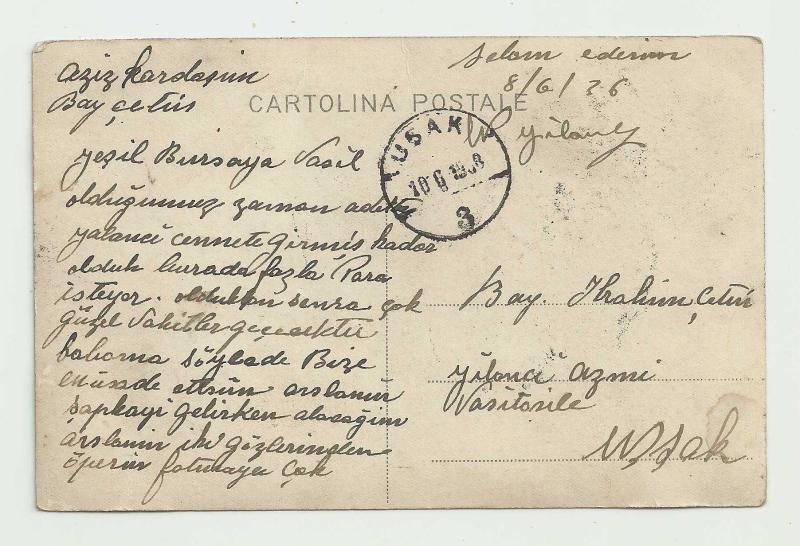 Aziz kardaşım
Bay Çetin
yeşil Bursaya Vasıl
olduğumuz zaman adeta
yalancı cennete girmiş kadar
olduk burada fazla Para
isteyor. olduktan sonra çok
güzel Vakitler geçecektir
babama söylede Bize
müsade etsün arslanım
şapkayi gelirken alacağım
arslanım iki gözlerinden
öperim fatmaya çok
selam ederim
8/6/36
CARTOLINA POSTALE
UŞAK
10 6 19 8
3
Bay. İbrahim Çetin
yılancı azmi
Vasıtasile
Uşak